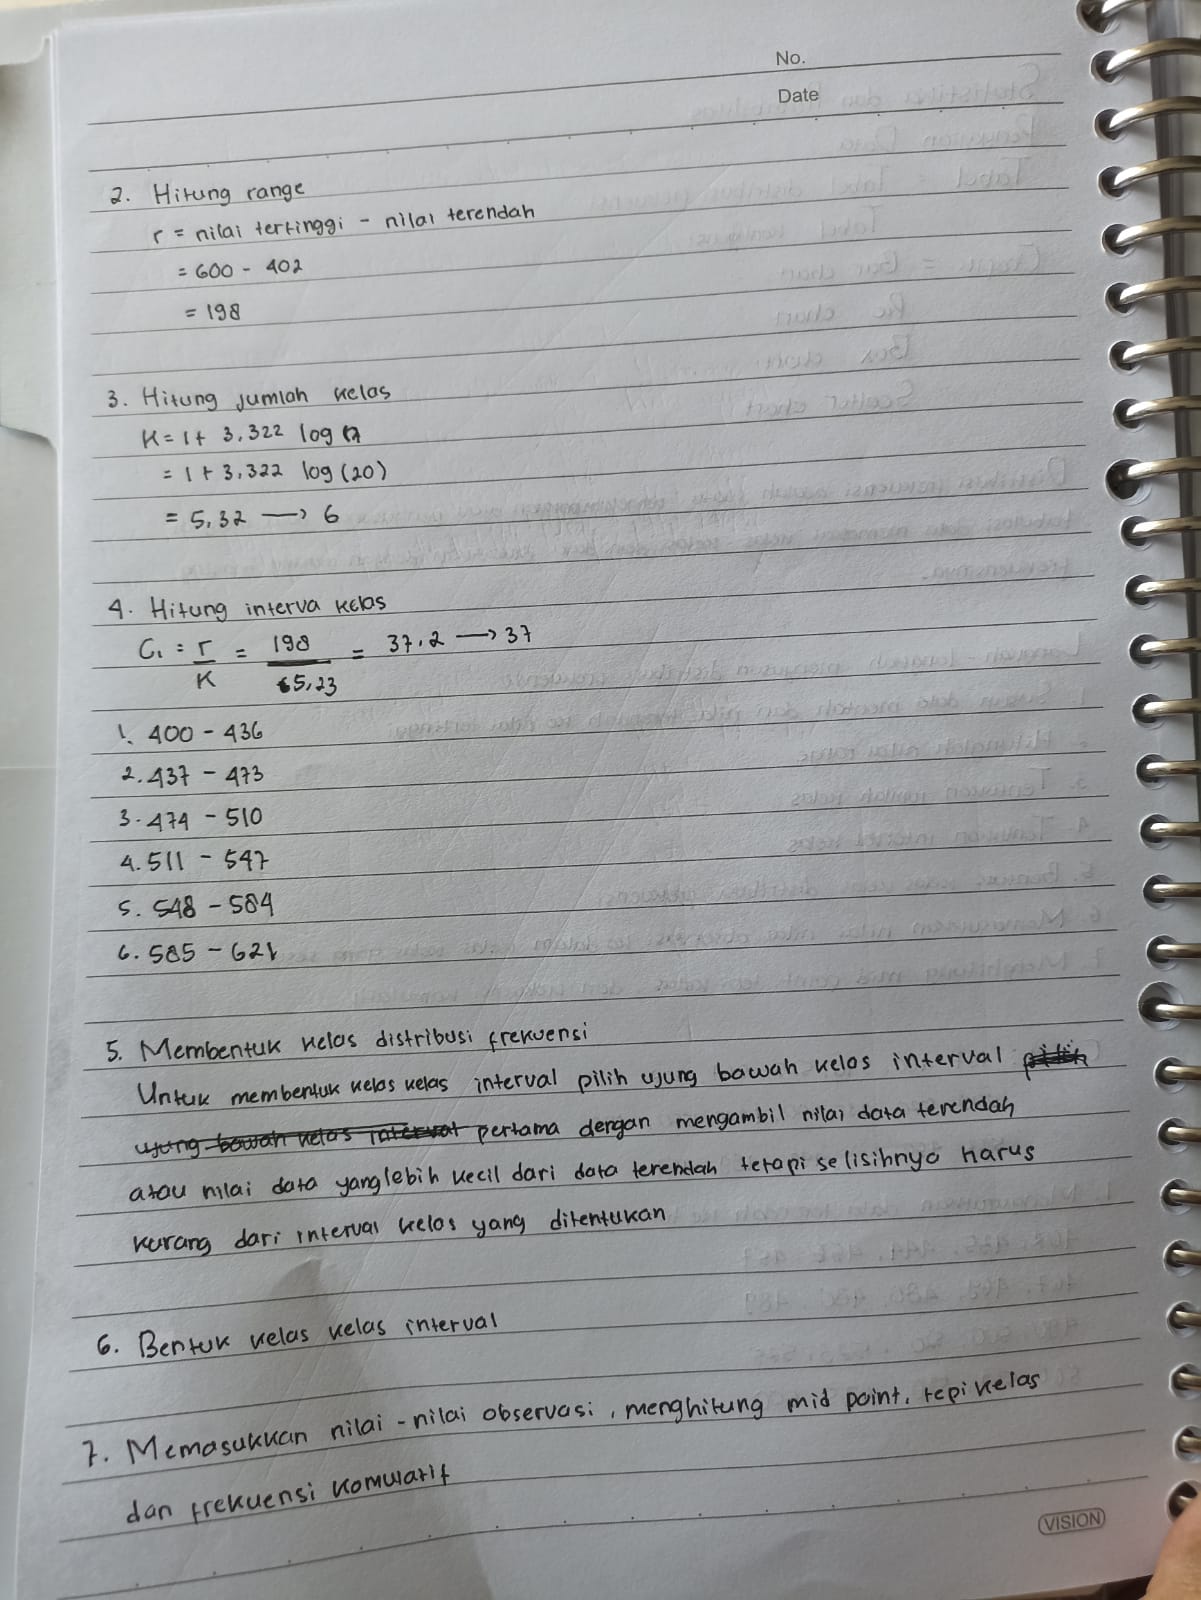 No.
Date
2. Hitung range
r = nilai tertinggi - nilai terendah
= 600 - 402
= 198
3. Hitung jumlah kelas
K = 1 + 3,322 log n
= 1 + 3,322 log (20)
= 5,32 → 6
4. Hitung interva kelas
Ci = r/K = 198/5,23 = 37.2 → 37
1. 400 - 436
2. 437 - 473
3. 474 - 510
4. 511 - 547
5. 548 - 584
6. 585 - 621
5. Membentuk kelas distribusi frekuensi
Untuk membentuk kelas kelas interval pilih ujung bawah kelas interval pilih
ujung bawah kelas interval pertama dengan mengambil nilai data terendah
atau nilai data yang lebih kecil dari data terendah tetapi selisihnya harus
kurang dari interval kelas yang ditentukan
6. Bentuk kelas kelas interval
7. Memasukkan nilai - nilai observasi, menghitung mid point, tepi kelas
dan frekuensi komulatif
VISION